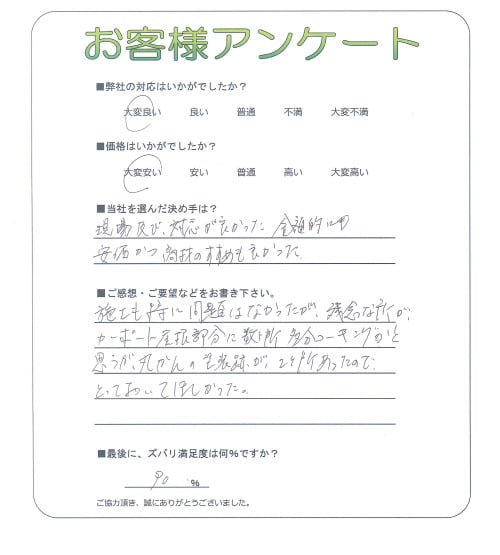 お客様アンケート
■弊社の対応はいかがでしたか？
大変良い 良い 普通 不満 大変不満
■価格はいかがでしたか？
大変安い 安い 普通 高い 大変高い
■当社を選んだ決め手は？
現場及び、対応が良かった 金額的にも
安価かつ 商材のすすめも良かった
■ご感想・ご要望などをお書き下さい。
施工も特に問題はなかったが、残念な所が、
カーポート屋根部分に数ヶ所 多分コーキングかと
思うが、丸かんの 跡が、2ヶ所あったので
とっておいてほしかった。
■最後に、ズバリ満足度は何％ですか？
90 ％
ご協力頂き、誠にありがとうございました。